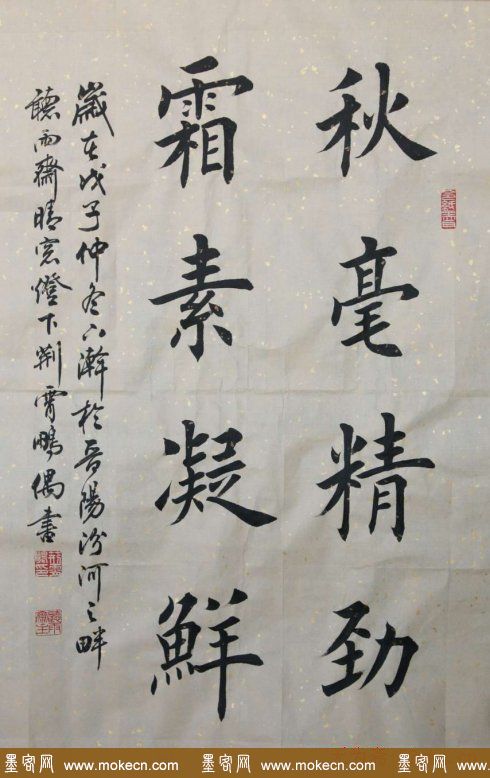 秋毫精勁
霜素凝鮮
歲在戊子仲冬下澣於晉陽汾河之畔
聽雨齋晴窓燈下荆霄鵬偶書
墨客网 www.mokecn.com 墨客网 www.mokecn.com 墨客网